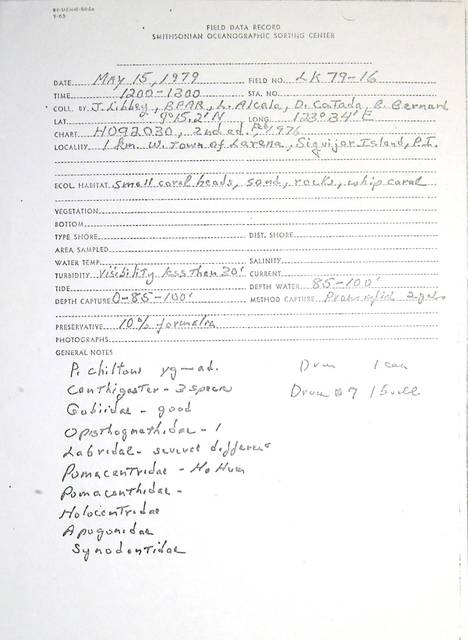 FIELD DATA RECORD
SMITHSONIAN OCEANOGRAPHIC SORTING CENTER
DATE May 15, 1979 FIELD NO. LK 79-16
TIME 1200-1300 STA. NO.
COLL. BY J. Libbey, BFAR, L. Alcala, D. Catada, B. Bernard
LAT. 9°15.2'N LONG. 123°34'E
CHART HO92030, 2nd ed. Feb 1976
LOCALITY 1 km. W. Town of Larena, Siquijor Island, P.I.
ECOL. HABITAT small coral heads, sand, rocks, whip coral
VEGETATION
BOTTOM
TYPE SHORE DIST. SHORE
AREA SAMPLED
WATER TEMP. SALINITY
TURBIDITY visibility less than 30' CURRENT
TIDE DEPTH WATER 85-100'
DEPTH CAPTURE 0-85-100' METHOD CAPTURE
PRESERVATIVE 10% formalin
PHOTOGRAPHS
GENERAL NOTES
P. chiltoni yg-ad. Drum 1 can
Canthigaster - 3 species Drum #7
Gobiidae - good
Opisthognathidae - 1
Labridae - several different
Pomacentridae - Ho Hum
Pomacanthidae -
Holocentridae
Apogonidae
Synodontidae